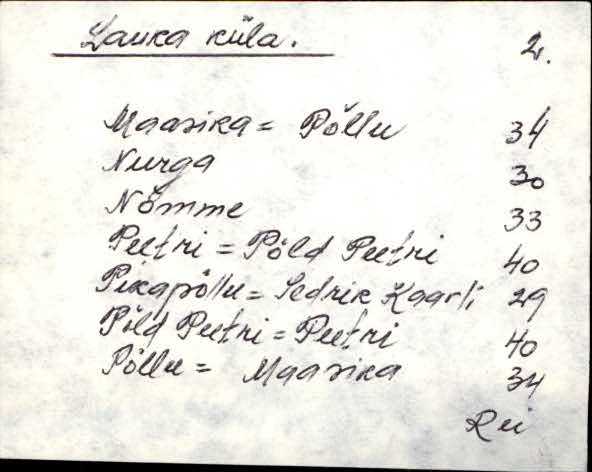 Lauka küla. 2.
Maasika = Põllu 34
Nurga 30
Nõmme 33
Peetri = Põld Peetri 40
Pikapõllu = Sedrik Kaarli 29
Põld Peetri = Peetri 40
Põllu = Maasika 34